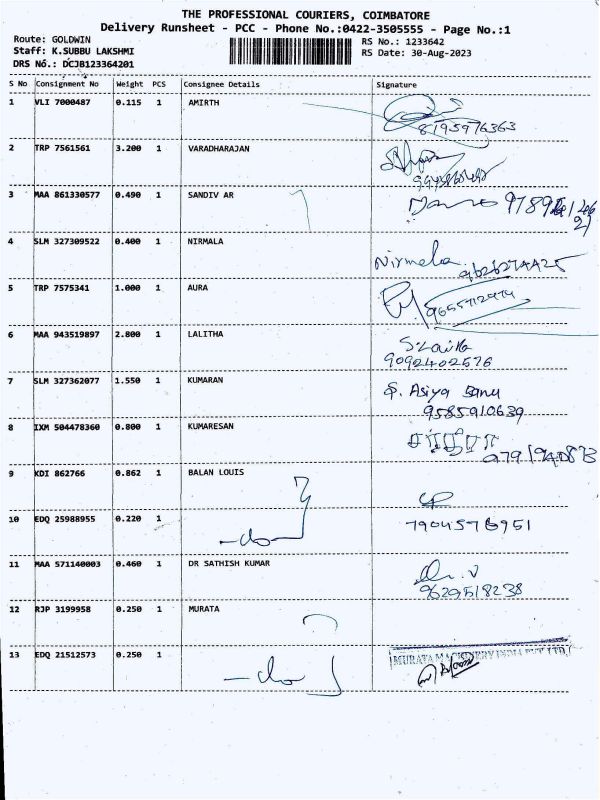 THE PROFESSIONAL COURIERS, COIMBATORE
Delivery Runsheet - PCC - Phone No.:0422-3505555 - Page No.:1
Route: GOLDWIN
Staff: K.SUBBU LAKSHMI
DRS No.: DCJB123364201
RS No.: 1233642
RS Date: 30-Aug-2023
S No Consignment No Weight PCS Consignee Details Signature
1 VLI 7000487 0.115 1 AMIRTH
8195976363
2 TRP 7561561 3.200 1 VARADHARAJAN
3 MAA 861330577 0.490 1 SANDIV AR
4 SLM 327309522 0.400 1 NIRMALA Nirmala
5 TRP 7575341 1.000 1 AURA
9655712974
6 MAA 943519897 2.800 1 LALITHA
9092402576
7 SLM 327362077 1.550 1 KUMARAN S. Asiya Banu
9585910639
8 IXM 504478360 0.800 1 KUMARESAN
9 KDI 862766 0.862 1 BALAN LOUIS
10 EDQ 25988955 0.220 1 -do- 7904576951
11 MAA 571140003 0.460 1 DR SATHISH KUMAR
9629518238
12 RJP 3199958 0.250 1 MURATA
13 EDQ 21512573 0.250 1 -do- MURATA MACHINERY INDIA PVT. LTD.